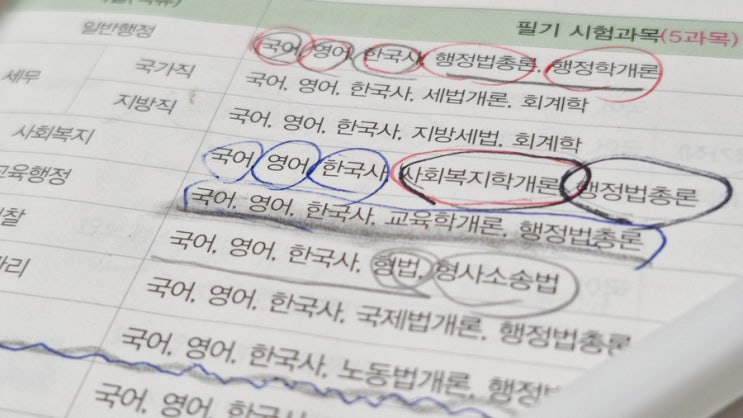 필기 시험과목(5과목)
일반행정
국어, 영어, 한국사, 행정법총론, 행정학개론
세무
국가직
국어, 영어, 한국사, 세법개론, 회계학
지방직
국어, 영어, 한국사, 지방세법, 회계학
사회복지
국어, 영어, 한국사, 사회복지학개론, 행정법총론
교육행정
국어, 영어, 한국사, 교육학개론, 행정법총론
찰
국어, 영어, 한국사, 형법, 형사소송법
국어, 영어, 한국사, 국제법개론, 행정법총론
국어, 영어, 한국사, 노동법개론, 행정법
국어, 영어, 한국사